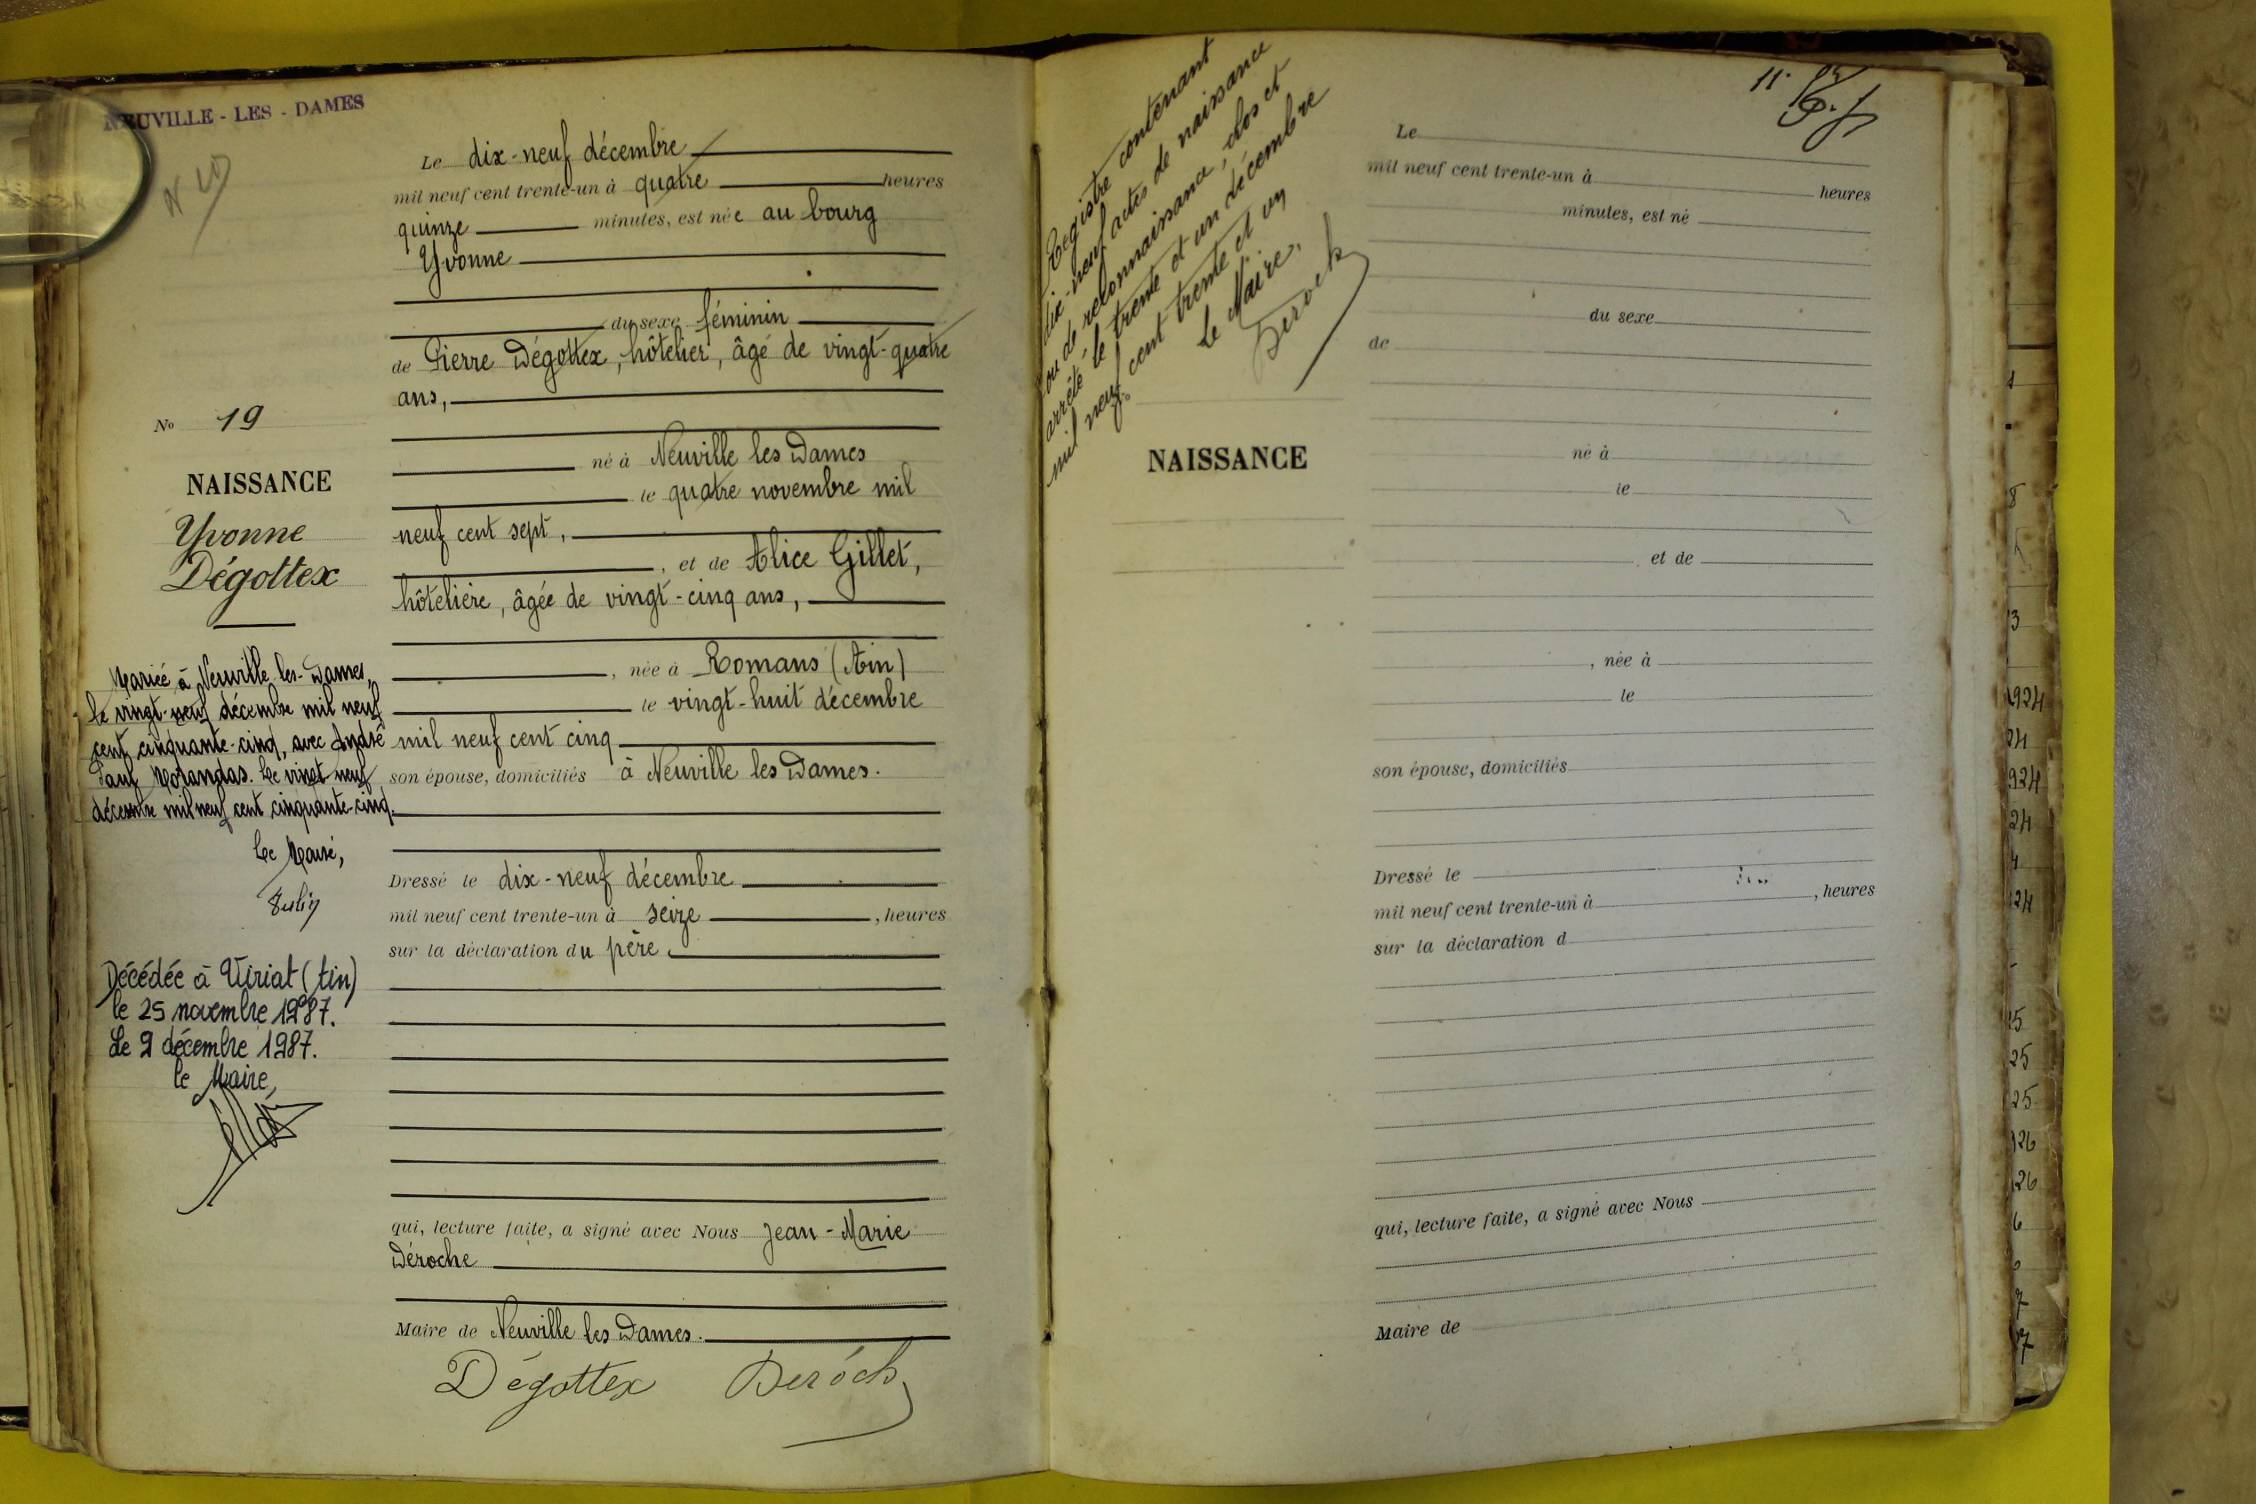 NEUVILLE - LES - DAMES
Le dix-neuf décembre
mil neuf cent trente-un à quatre heures
quinze minutes, est née au bourg
Yvonne
du sexe féminin
de Pierre Dégottex, hôtelier, âgé de vingt-quatre
ans,
né à Neuville les Dames
le quatre novembre mil
neuf cent sept,
, et de Alice Gillet,
hôtelière, âgée de vingt-cinq ans,
, née à Romans (Ain)
le vingt-huit décembre
mil neuf cent cinq
son épouse, domiciliés à Neuville les Dames.
Dressé le dix-neuf décembre
mil neuf cent trente-un à seize , heures
sur la déclaration du père
qui, lecture faite, a signé avec Nous Jean-Marie
Déroche
Maire de Neuville les Dames.
Dégottex Deroch
No 19
NAISSANCE
Yvonne
Dégottex
Mariée à Neuville-les-Dames,
le vingt-neuf décembre mil neuf
cent cinquante-cinq, avec André
Paul Morandas. Le vingt neuf
décembre mil neuf cent cinquante-cinq.
Le Maire,
Décédée à Viriat (Ain)
le 25 novembre 1987.
Le 9 décembre 1987.
le Maire,
Registre contenant
dix-neuf actes de naissance
ou de reconnaissance, clos et
arrêté le trente et un décembre
mil neuf cent trente et un
Le Maire,
Deroch
NAISSANCE
11
Le
mil neuf cent trente-un à heures
minutes, est né
du sexe
de
né à
le
et de
, née à
le
son épouse, domiciliés
Dressé le
mil neuf cent trente-un à , heures
sur la déclaration d
qui, lecture faite, a signé avec Nous
Maire de
1924
24
924
24
4
24
15
25
25
26
26
6
7